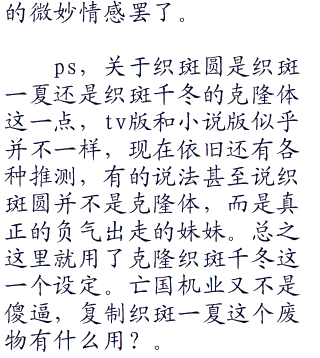 的微妙情感罢了。
ps，关于织斑圆是织斑
一夏还是织斑千冬的克隆体
这一点，tv版和小说版似乎
并不一样，现在依旧还有各
种推测，有的说法甚至说织
斑圆并不是克隆体，而是真
正的负气出走的妹妹。总之
这里就用了克隆织斑千冬这
一个设定。亡国机业又不是
傻逼，复制织斑一夏这个废
物有什么用？。